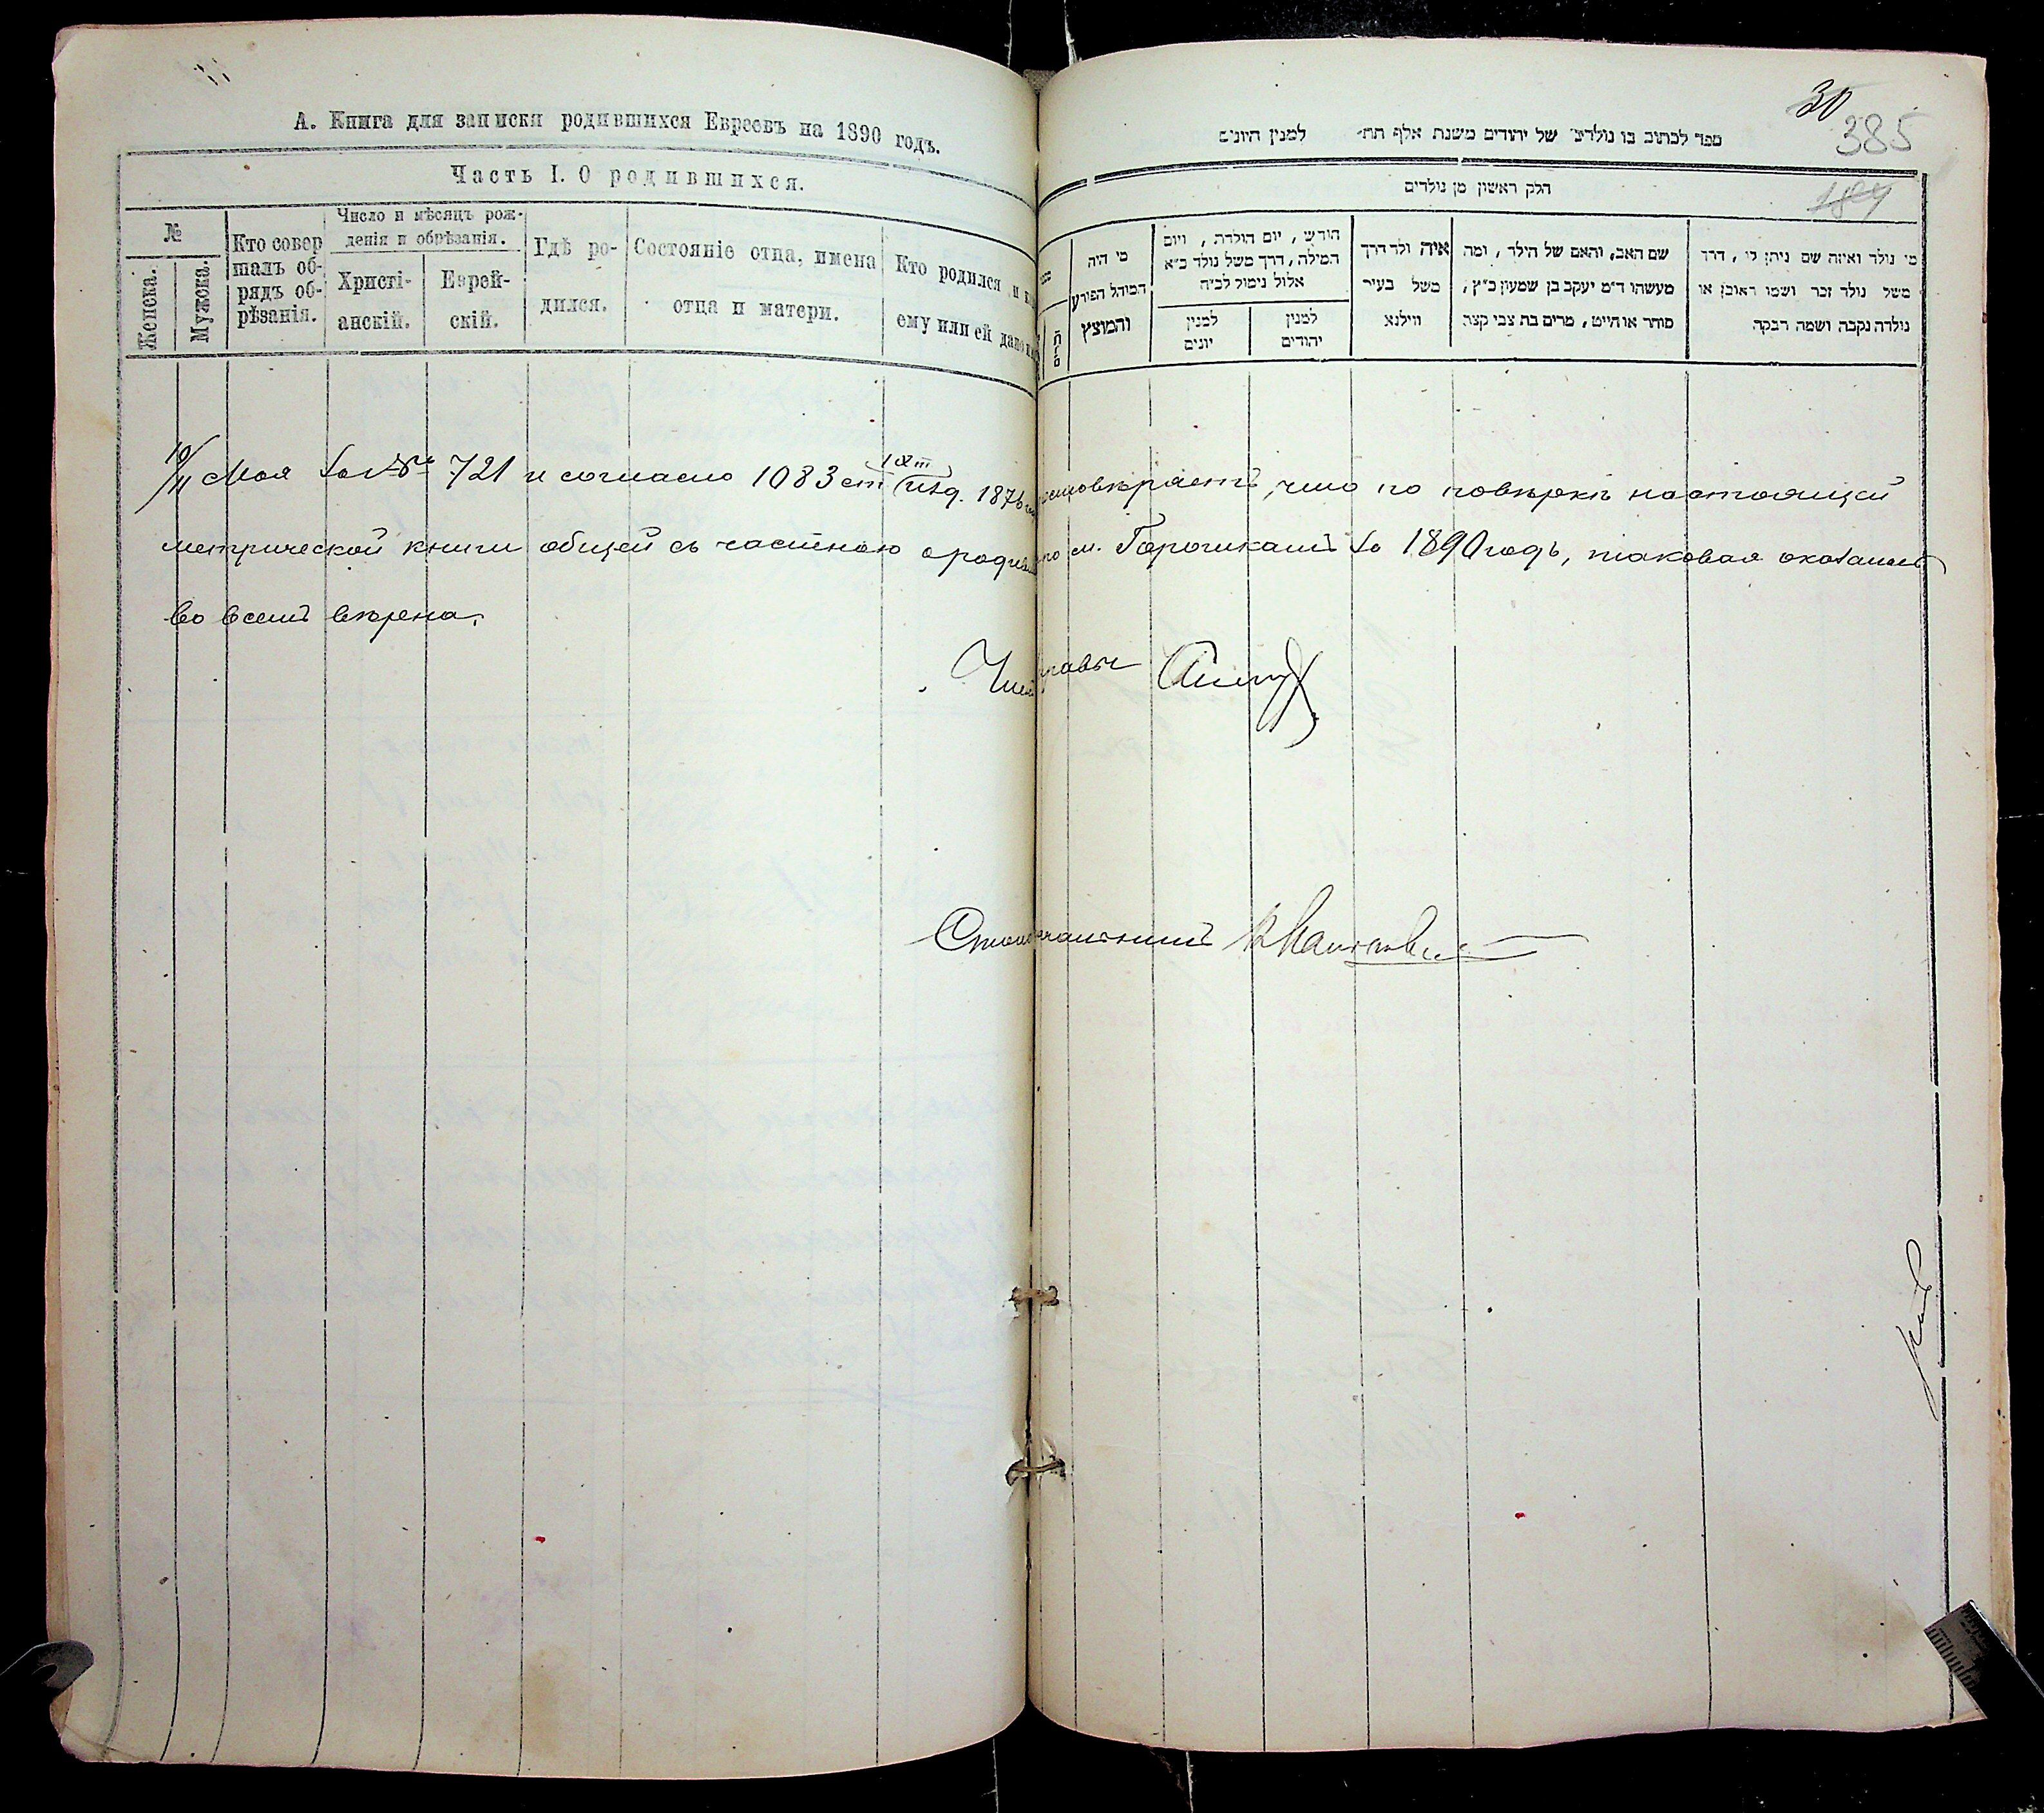 А. Книга для записки родившихся Евреевъ на 1890 годъ.
Часть I. О родившихся.
№
Женска.
Мужска.
Кто совер
шалъ об-
рядъ об-
рѣзанія.
Число и мѣсяцъ рож-
денія и обрѣзанія.
Христі-
анскій.
Еврей-
скій.
Гдѣ ро-
дился.
Состояніе отца, имена
отца и матери.
Кто родился и
ему или ей дано
30
385
189
ספר לכתוב בו נולדים של יהודים משנת אלף תת למנין היונים
חלק ראשון מן נולדים
מי היה
המוהל הפורע
והמוצץ
חודש, יום הולדת, ויום
המילה, דרך משל נולד כ״א
אלול נימול לכ״ח
למנין
יונים
למנין
יהודים
איה ולד דרך
משל בעיר
ווילנא
שם האב, והאם של הילד, ומה
מעשהו ד״מ יעקב בן שמעון כ״ץ,
סוחר או חייט, מרים בת צבי קצב
מי נולד ואיזה שם ניתן לו, דרך
משל נולד זכר ושמו ראובן או
נולדה נקבה ושמה רבקה
10/11 Мая за № 721 и согласно 1083 ст изд. 1876 товѣряетъ, что по повѣркѣ настоящей
метрической книги общей съ частною о родив по м. Горошкамъ за 1890 годъ, таковая оказалась
во всемъ вѣрена.
Член управы
Столоначальникъ